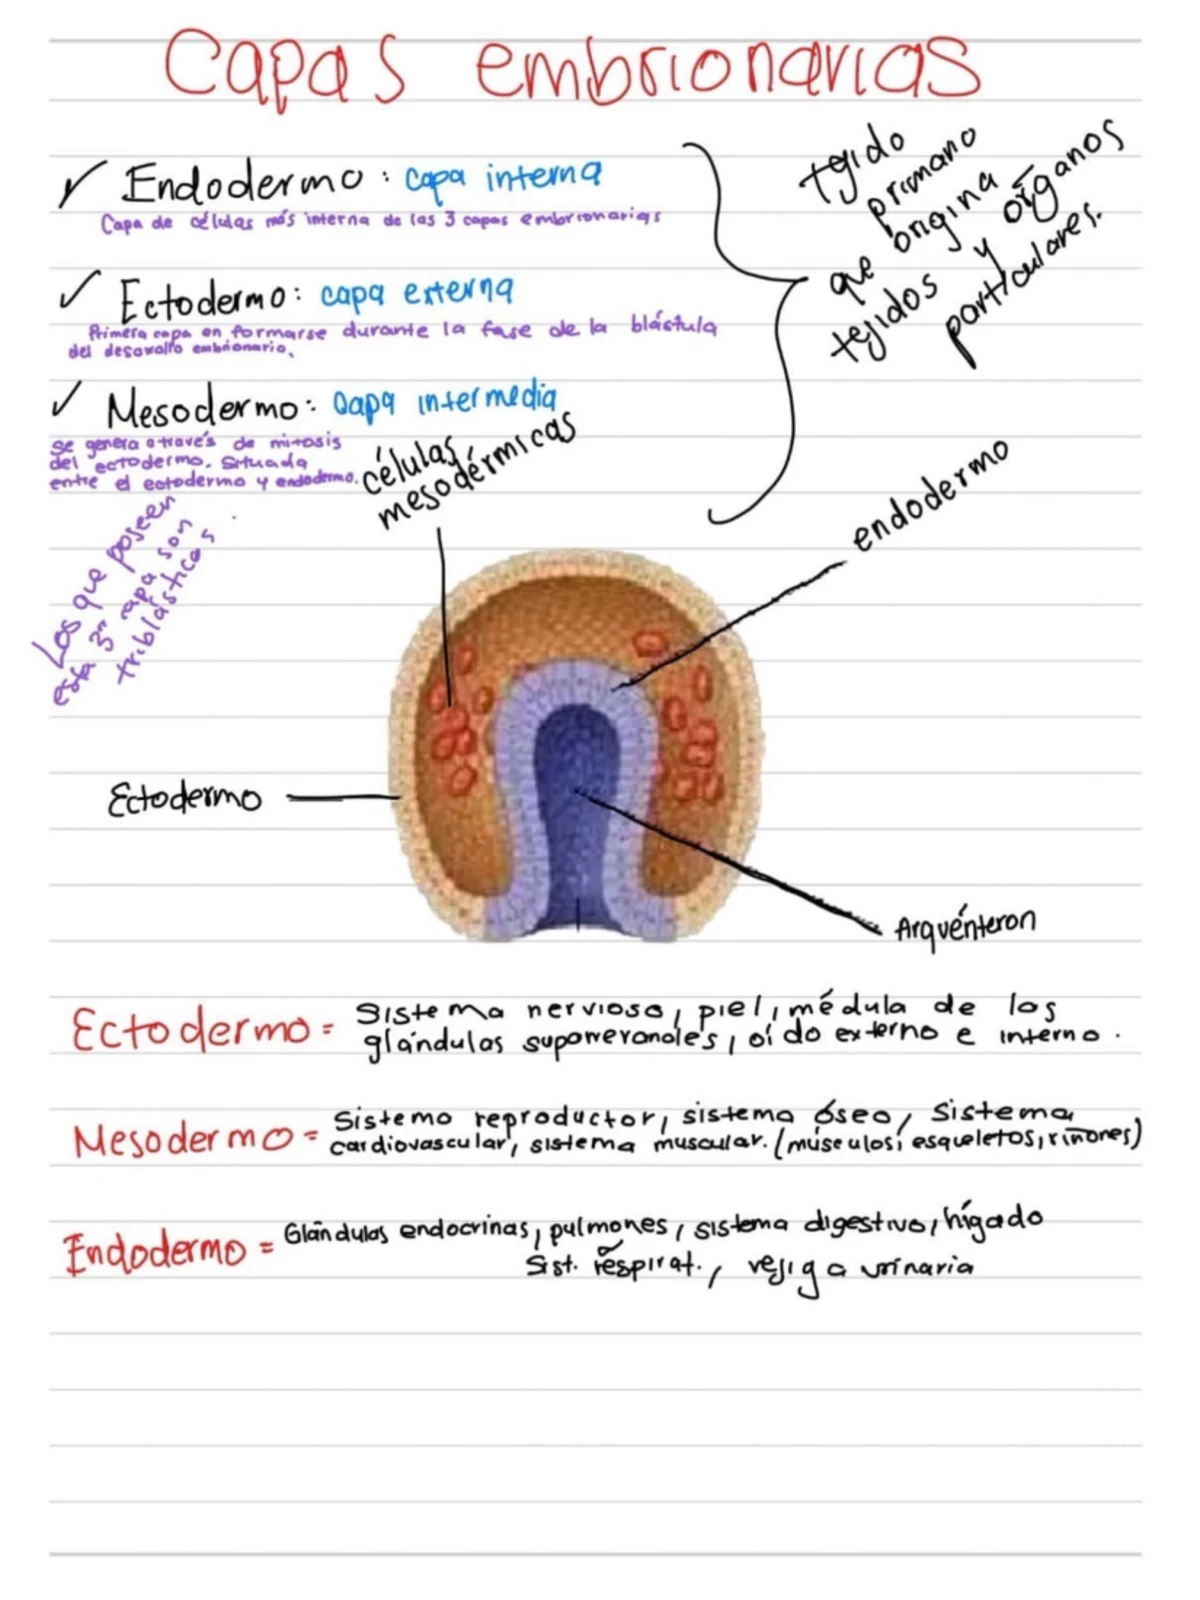 Capas embrionarias
✓ Endodermo: capa interna
Capa de células más interna de las 3 capas embrionarias
✓ Ectodermo: capa externa
Primera capa en formarse durante la fase de la blástula
del desarollo embrionario.
✓ Mesodermo: Capa intermedia
Se genera a través de mitosis
del ectodermo. Situada
entre el ectodermo y endodermo.
Los que poseen
esta 3ra capa son
triblásticos
tejido
primario
que origina
tejidos y órganos
particulares.
células
mesodérmicas
endodermo
Ectodermo
Arquénteron
Ectodermo = Sistema nervioso, piel, médula de las
glándulas suporreranales, oído externo e interno.
Mesodermo = Sistema reproductor, sistema óseo, Sistema
cardiovascular, sistema muscular. (músculos, esqueletos, riñones)
Endodermo = Glándulas endocrinas, pulmones, sistema digestivo, hígado
Sist. respirat., vejiga urinaria